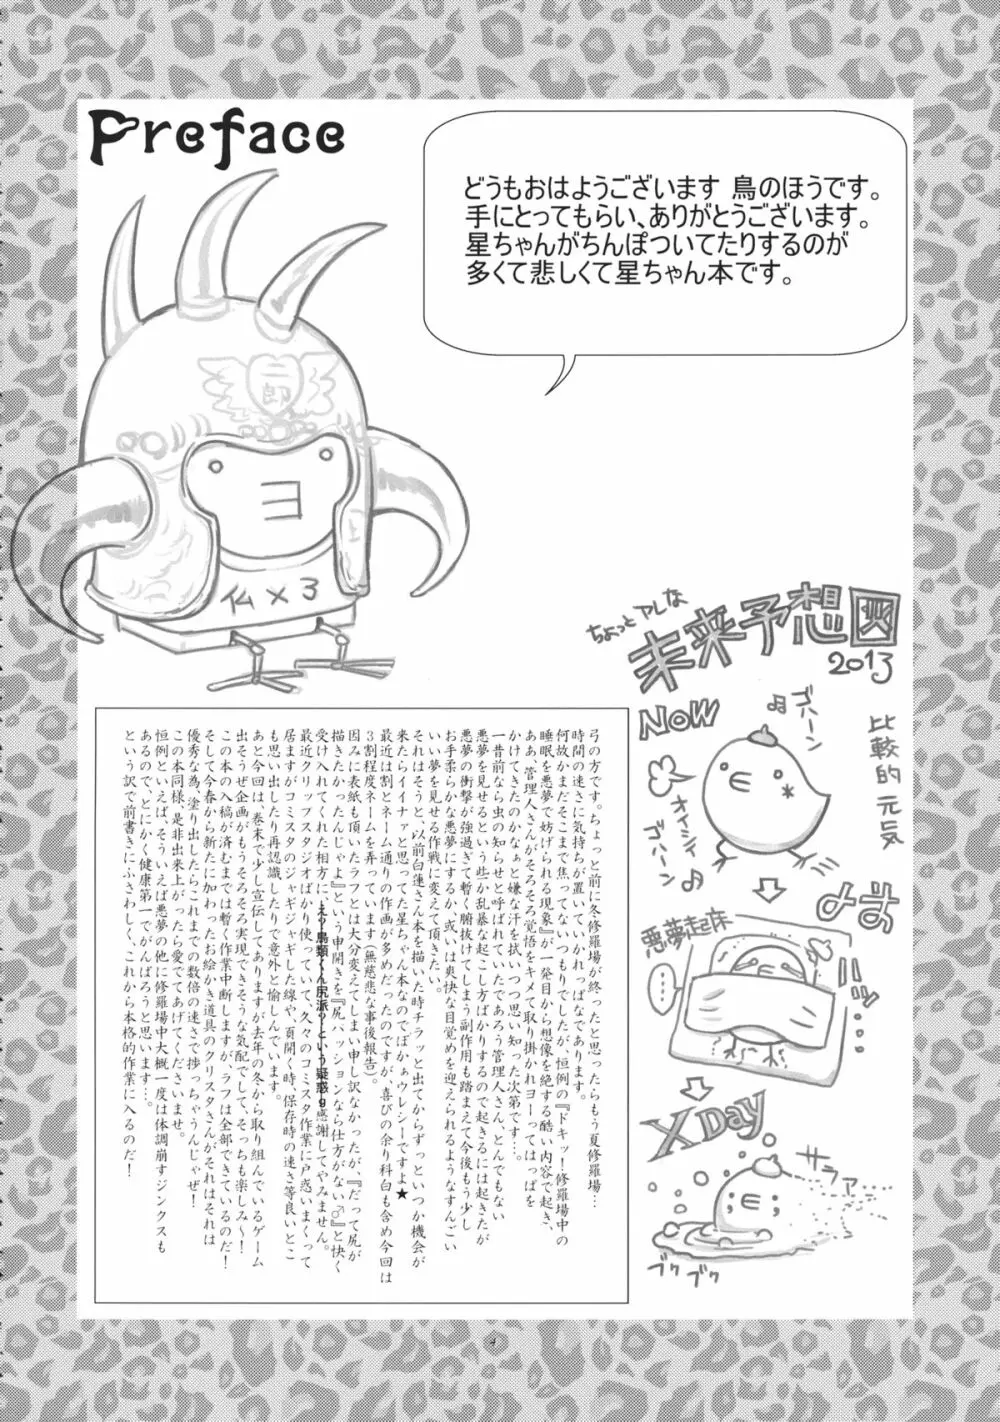 Preface
どうもおはようございます 鳥のほうです。
手にとってもらい、ありがとうございます。
星ちゃんがちんぽついてたりするのが
多くて悲しくて星ちゃん本です。
二郎
ヨ
仏×3
ちょっとアレな
未来予想図
2013
NOW
ゴハーン
比較的元気
オイシイ
ゴハーン
悪夢起床
ハッ
X Day
サラァ
ブク
ブク
弓の方です。ちょっと前に冬修羅場が終ったと思ったらもう夏修羅場…
時間の速さに気持ちが置いていかれっぱなであります。
何故かまだそこまで焦ってないつもりでしたが、恒例の『ドキッ!修羅場中の
睡眠を悪夢で妨げられる現象』が一発目から想像を絶する酷い内容で起き、
ああ、管理人さんがそろそろ覚悟をキメて取り掛かれヨーってはっぱを
かけてきたのかなぁと嫌な汗を拭いつつ思い知った次第です…。
一昔前なら虫の知らせと呼ばれていたであろう管理人さん、とんでもない
悪夢を見せるという些か乱暴な起こし方ばかりするので起きるには起きたが
悪夢の衝撃が強過ぎて暫く腑抜けてしまう副作用も踏まえて今後もう少し
お手柔らかな悪夢にするか、或いは爽快な目覚めを迎えられるようなすんごい
いい夢を見せる作戦に変えて頂きたい。
それはそうと、以前白蓮さん本を描いた時チラッと出てからずっといつか機会が
来たらイイナァと思ってた星ちゃん本なのでばかぁウレシーですよ★
最近は割とネーム通りの作画が多めだったのですが、喜びの余り科白も含め今回は
3割程度ネームを弄っています(無慈悲な事後報告)。
因みに表紙も頂いたラフとは大分変えてしまい申し訳なかったが、『だって尻が
描きたかったんじゃよ』という申開きを『尻パッションなら仕方がない♂』と快く
受け入れてくれた相方に感謝してやみません。
最近クリップスタジオばかり使っていて、久々のコミスタ作業に戸惑いまくって
居ますがコミスタのジャギジャギした線や、頁開く時、保存時の速さ等良いとこ
も思い出したり再認識したりで意外と愉しんでいます。
あと今回は、巻末で少し宣伝してありますが去年の冬から取り組んでいるゲーム
出そうぜ企画がもうそろそろ実現できそうな気配でして、そっちも楽しみ〜!
この本の入稿が済むまでは暫く作業中断しますが、ラフは全部できているのだ!
そして今春から新たに加わったお絵かき道具のクリスタさんがそれはそれは
優秀な為、塗り出したらこれまでの数倍の速さで捗っちゃうんじゃぜ!
この本同様、是非出来上がったら愛でてあげてくださいませ。
恒例といえば、そういえば悪夢の他に修羅場中大概一度は体調崩すジンクスも
あるので、とにかく健康第一でがんばろうと思います…。
という訳で前書きにふさわしく、これから本格的作業に入るのだ!
4